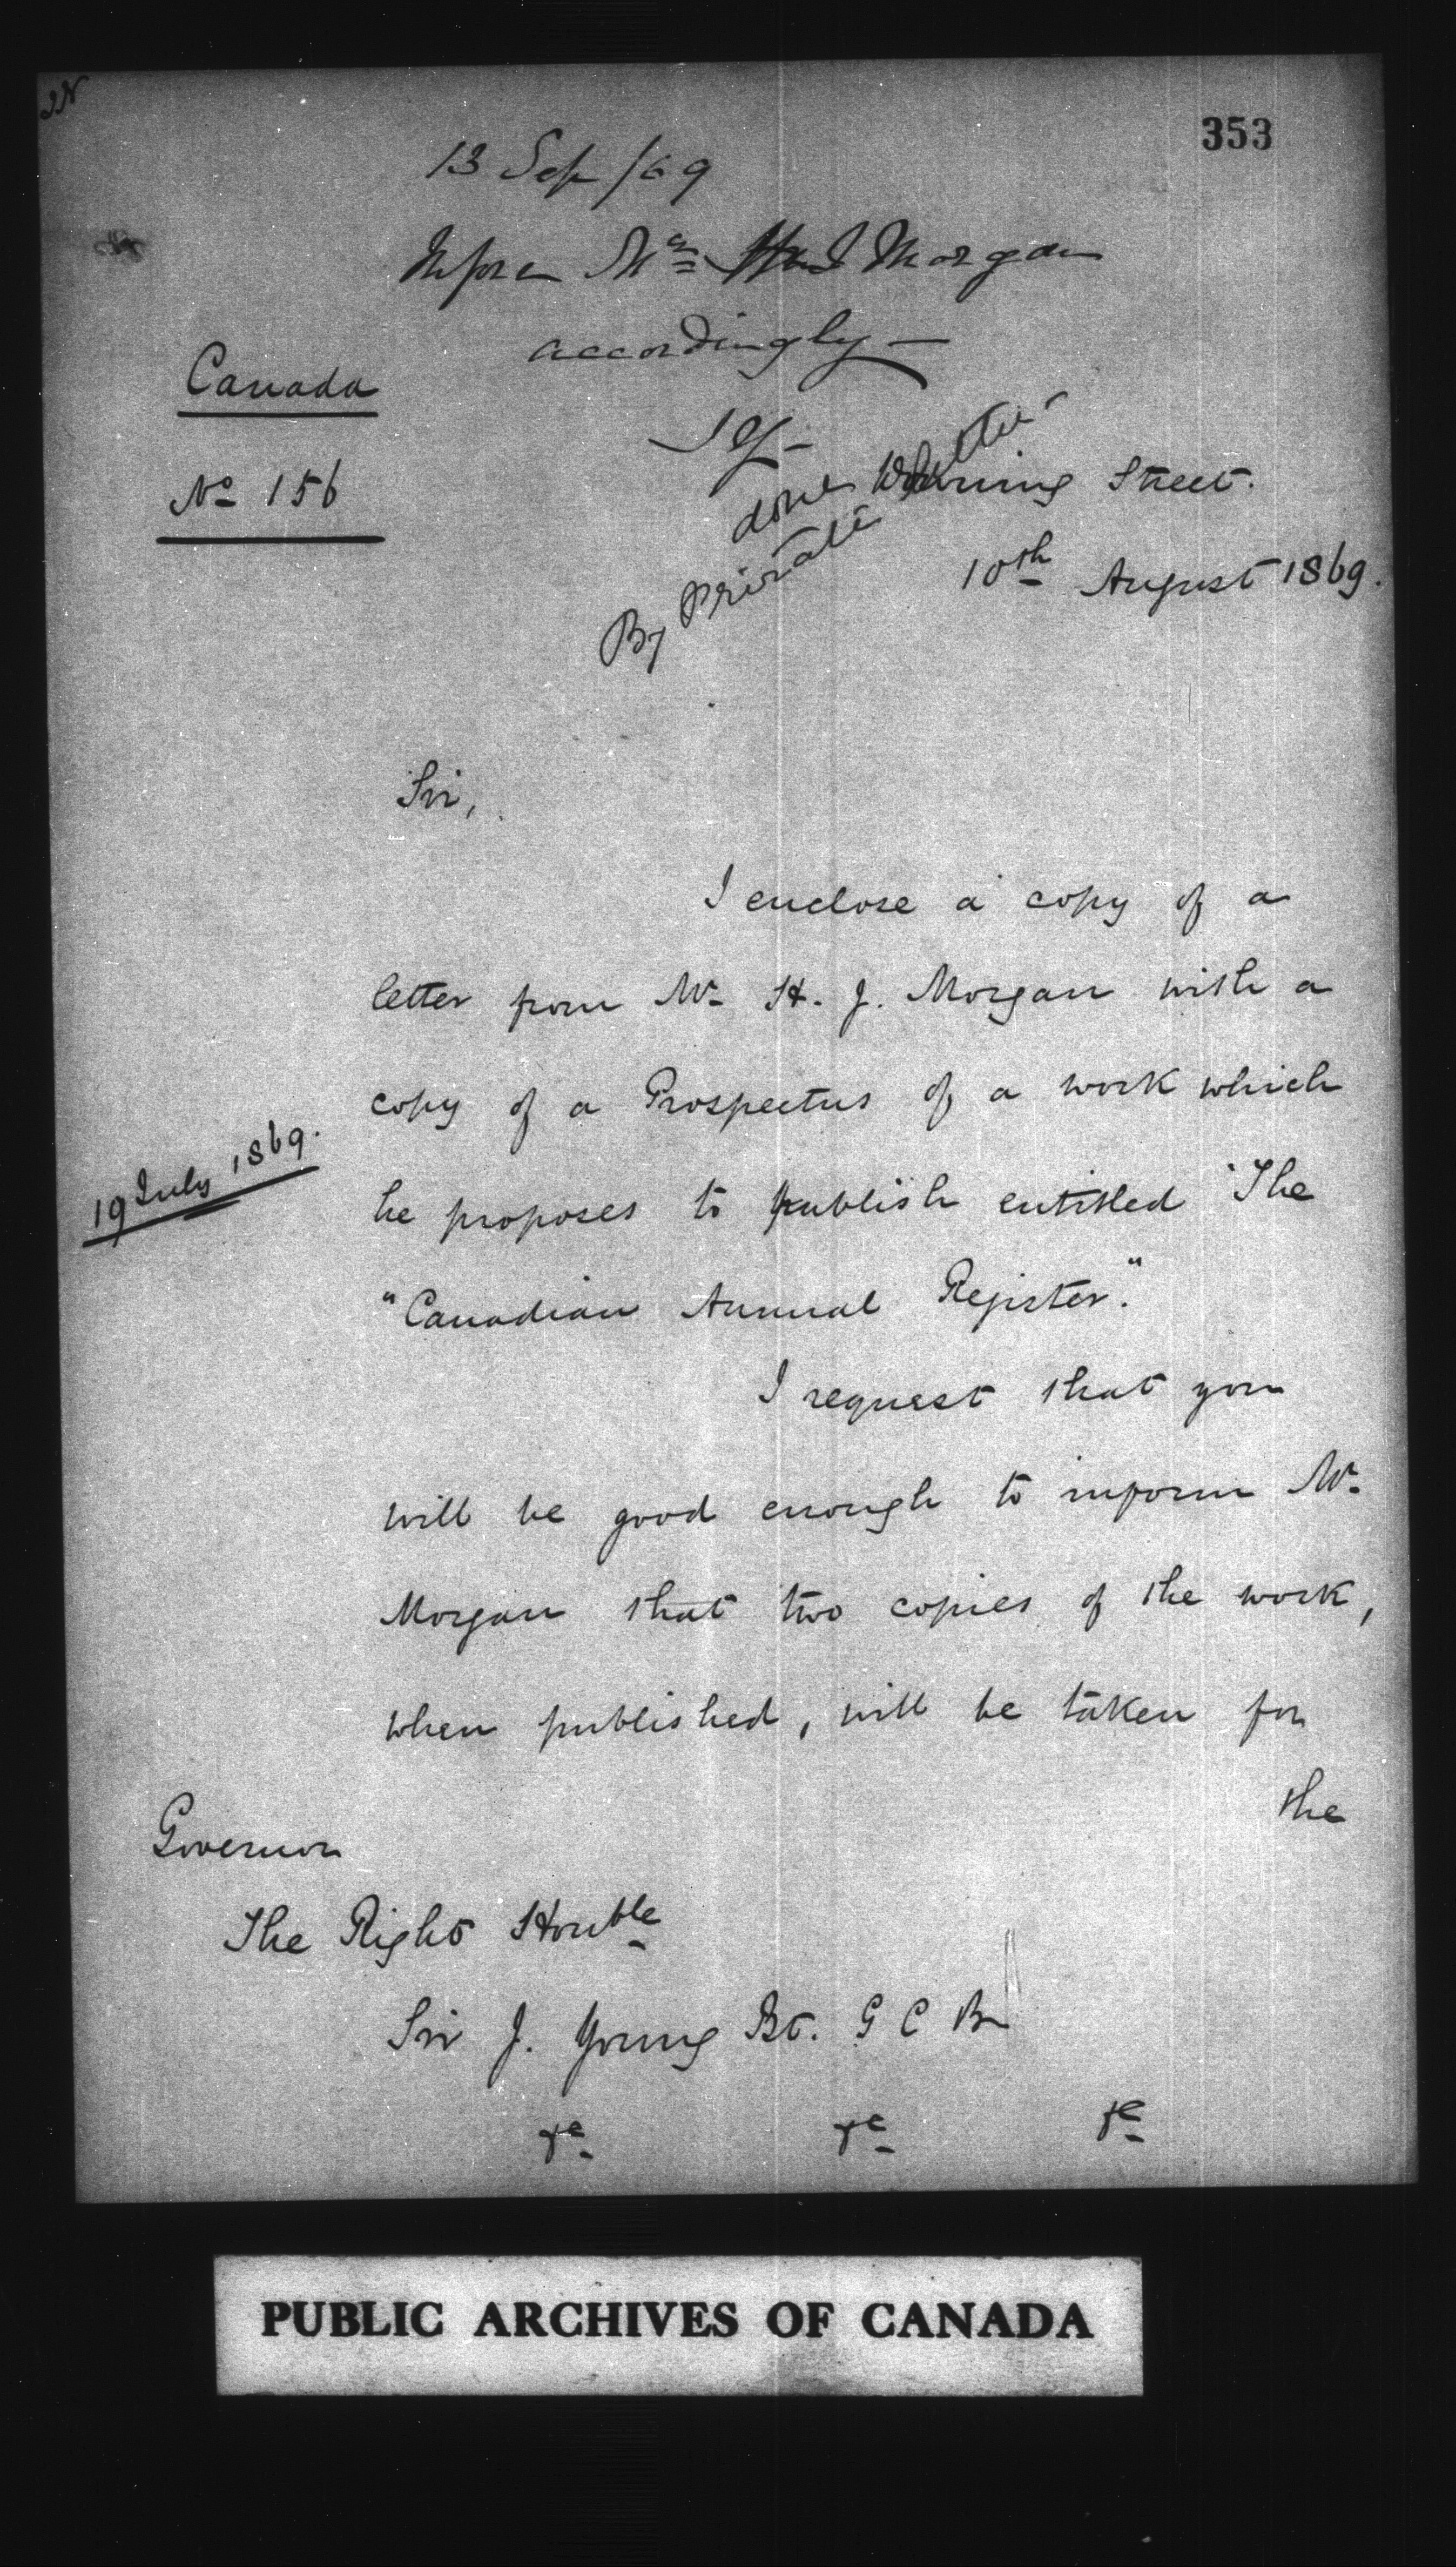 353
13 Sep /69
Inform Mr H J Morgan
accordingly —
JY-
Canada
No 156
done
By Private letter
Downing Street.
10th August 1869.
Sir,
I enclose a copy of a
letter from Mr H. J. Morgan with a
copy of a Prospectus of a work which
19 July 1869.
he proposes to publish entitled "The
"Canadian Annual Register."
I request that you
will be good enough to inform Mr
Morgan that two copies of the work,
when published, will be taken for
the
Governor
The Right Honble
Sir J. Young Bt. G C B
&c &c &c
PUBLIC ARCHIVES OF CANADA